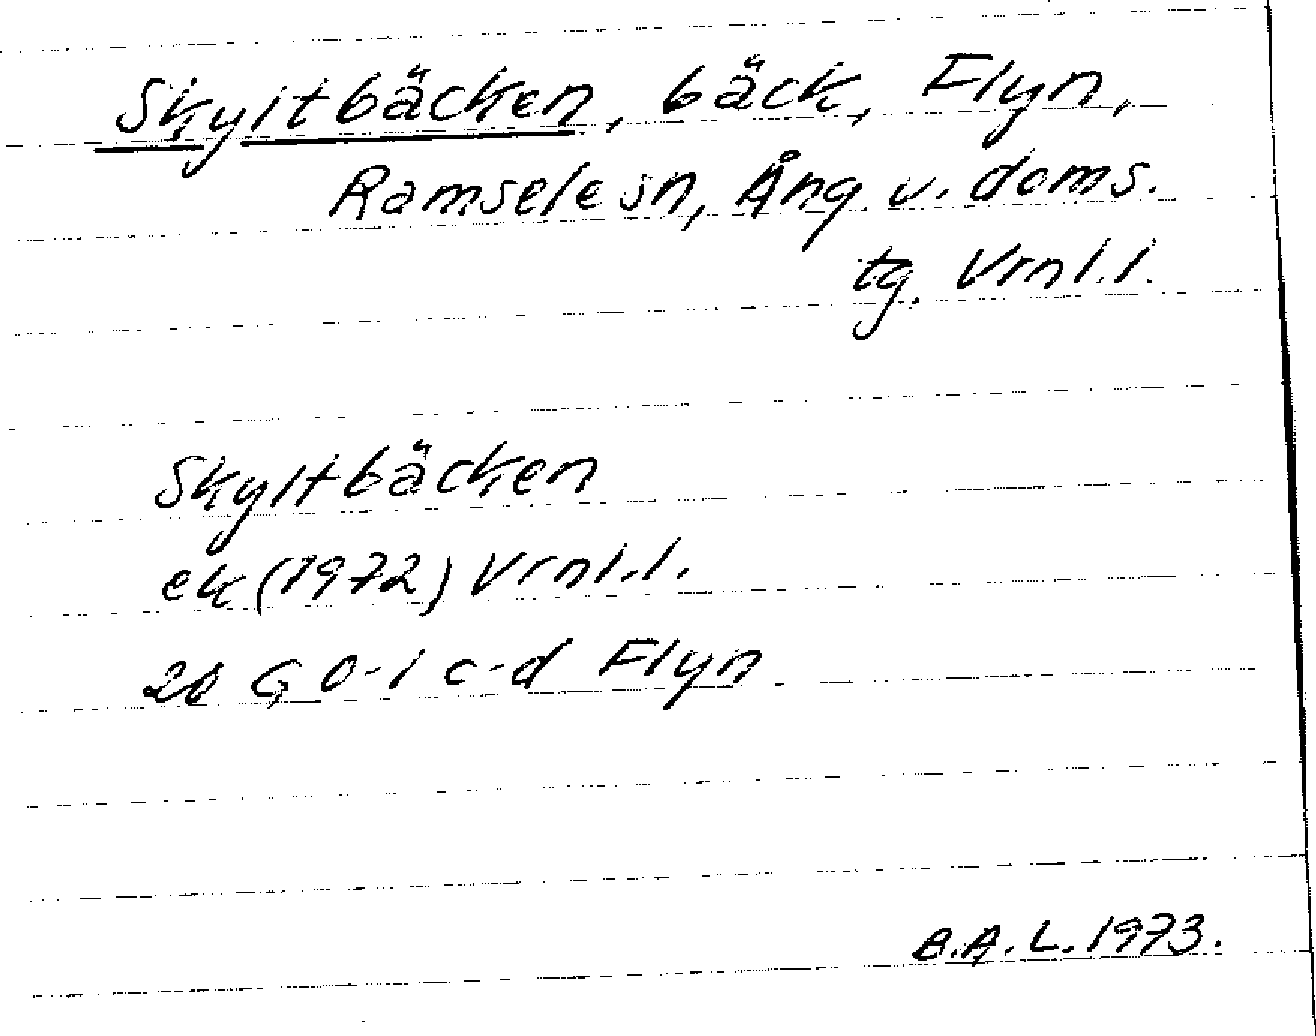 Skyltbäcken, bäck, Flyn,
Ramsele sn, Ång. v. doms.
tg. Vrnl.l.
Skyltbäcken
ek (1972) Vrnl.l.
20 G 0-1 c-d Flyn
B.A.L. 1973.